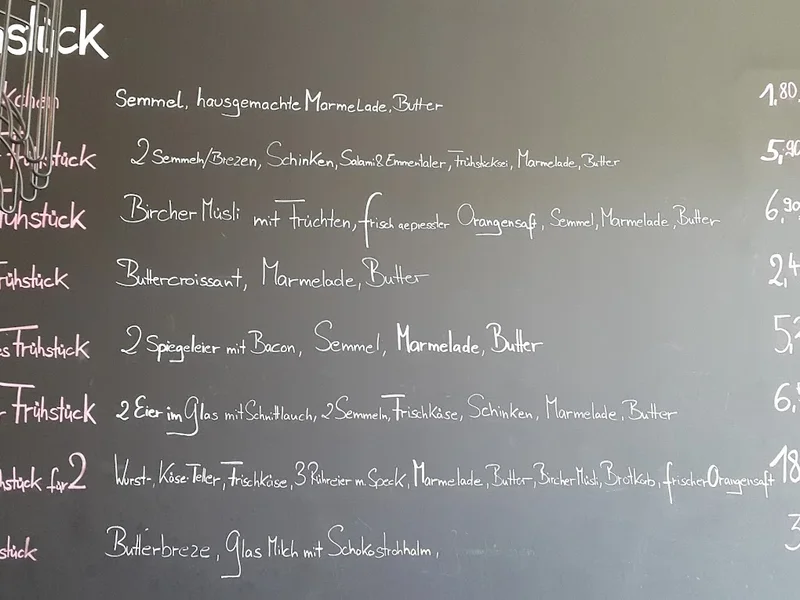 Semmel, hausgemachte Marmelade, Butter 1,80
2 Semmeln/Brezen, Schinken, Salami & Emmentaler, Frühstücksei, Marmelade, Butter 5,90
Frühstück Bircher Müsli mit Früchten, frisch gepresster Orangensaft, Semmel, Marmelade, Butter 6,90
Frühstück Buttercroissant, Marmelade, Butter 2,4
es Frühstück 2 Spiegeleier mit Bacon, Semmel, Marmelade, Butter 5,
Frühstück 2 Eier im Glas mit Schnittlauch, 2 Semmeln, Frischkäse, Schinken, Marmelade, Butter 6,
hstück für 2 Wurst-, Käse-Teller, Frischkäse, 3 Rühreier m. Speck, Marmelade, Butter, Bircher Müsli, Brotkorb, frischer Orangensaft 18
stück Butterbreze, Glas Milch mit Schokostrohhalm, 3